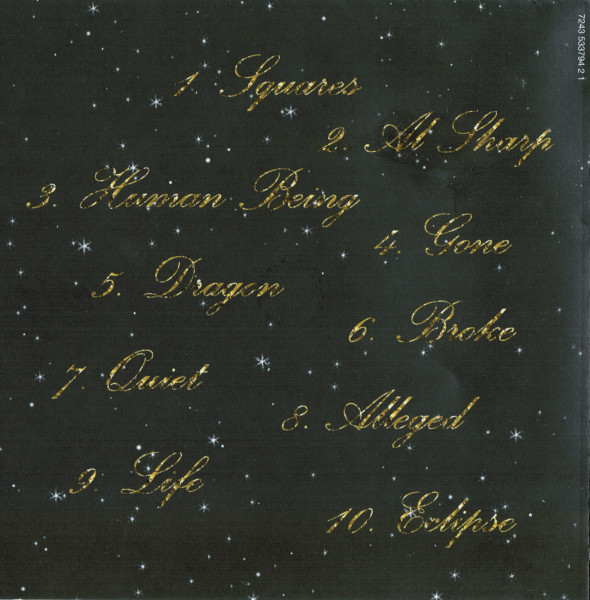 7243 533794 2 1
1. Squares
2. Al Sharp
3. Human Being
4. Gone
5. Dragon
6. Broke
7 Quiet
8. Alleged
9. Life
10. Eclipse